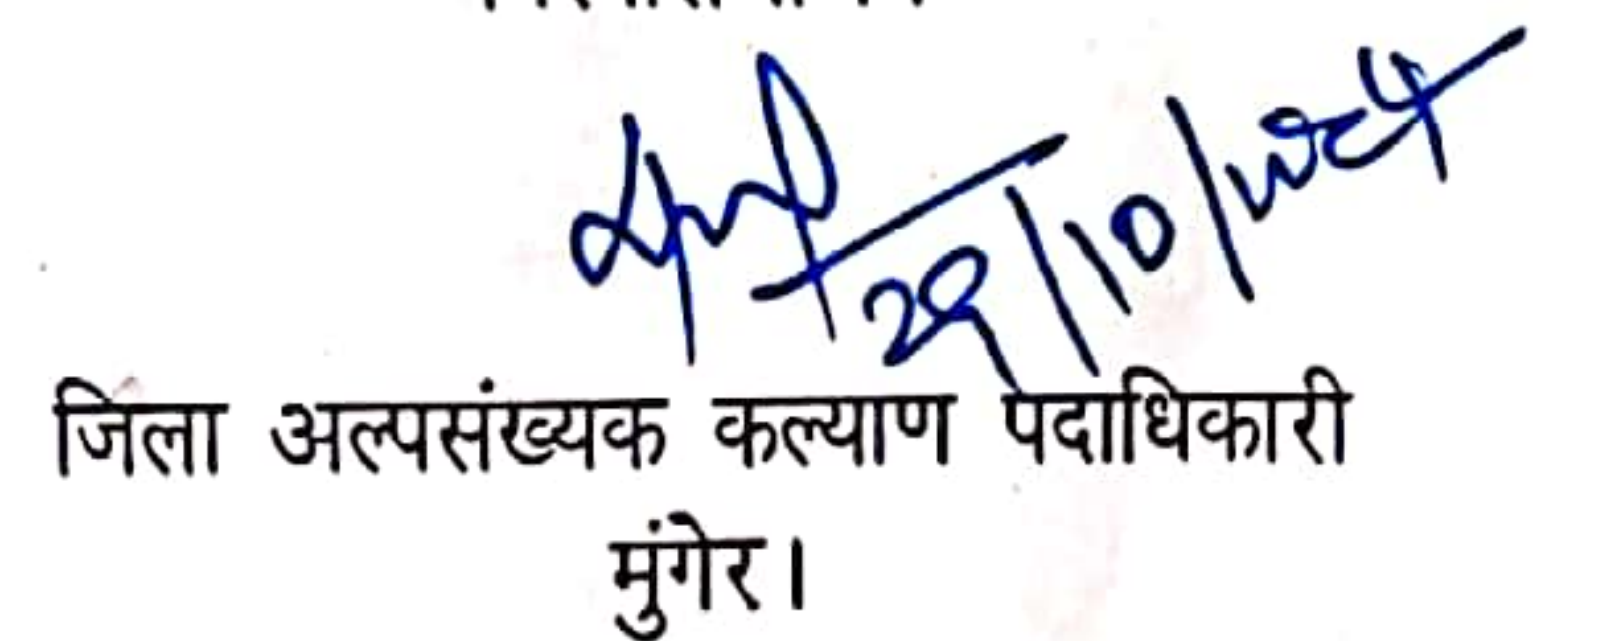 29/10/2024
जिला अल्पसंख्यक कल्याण पदाधिकारी
मुंगेर।